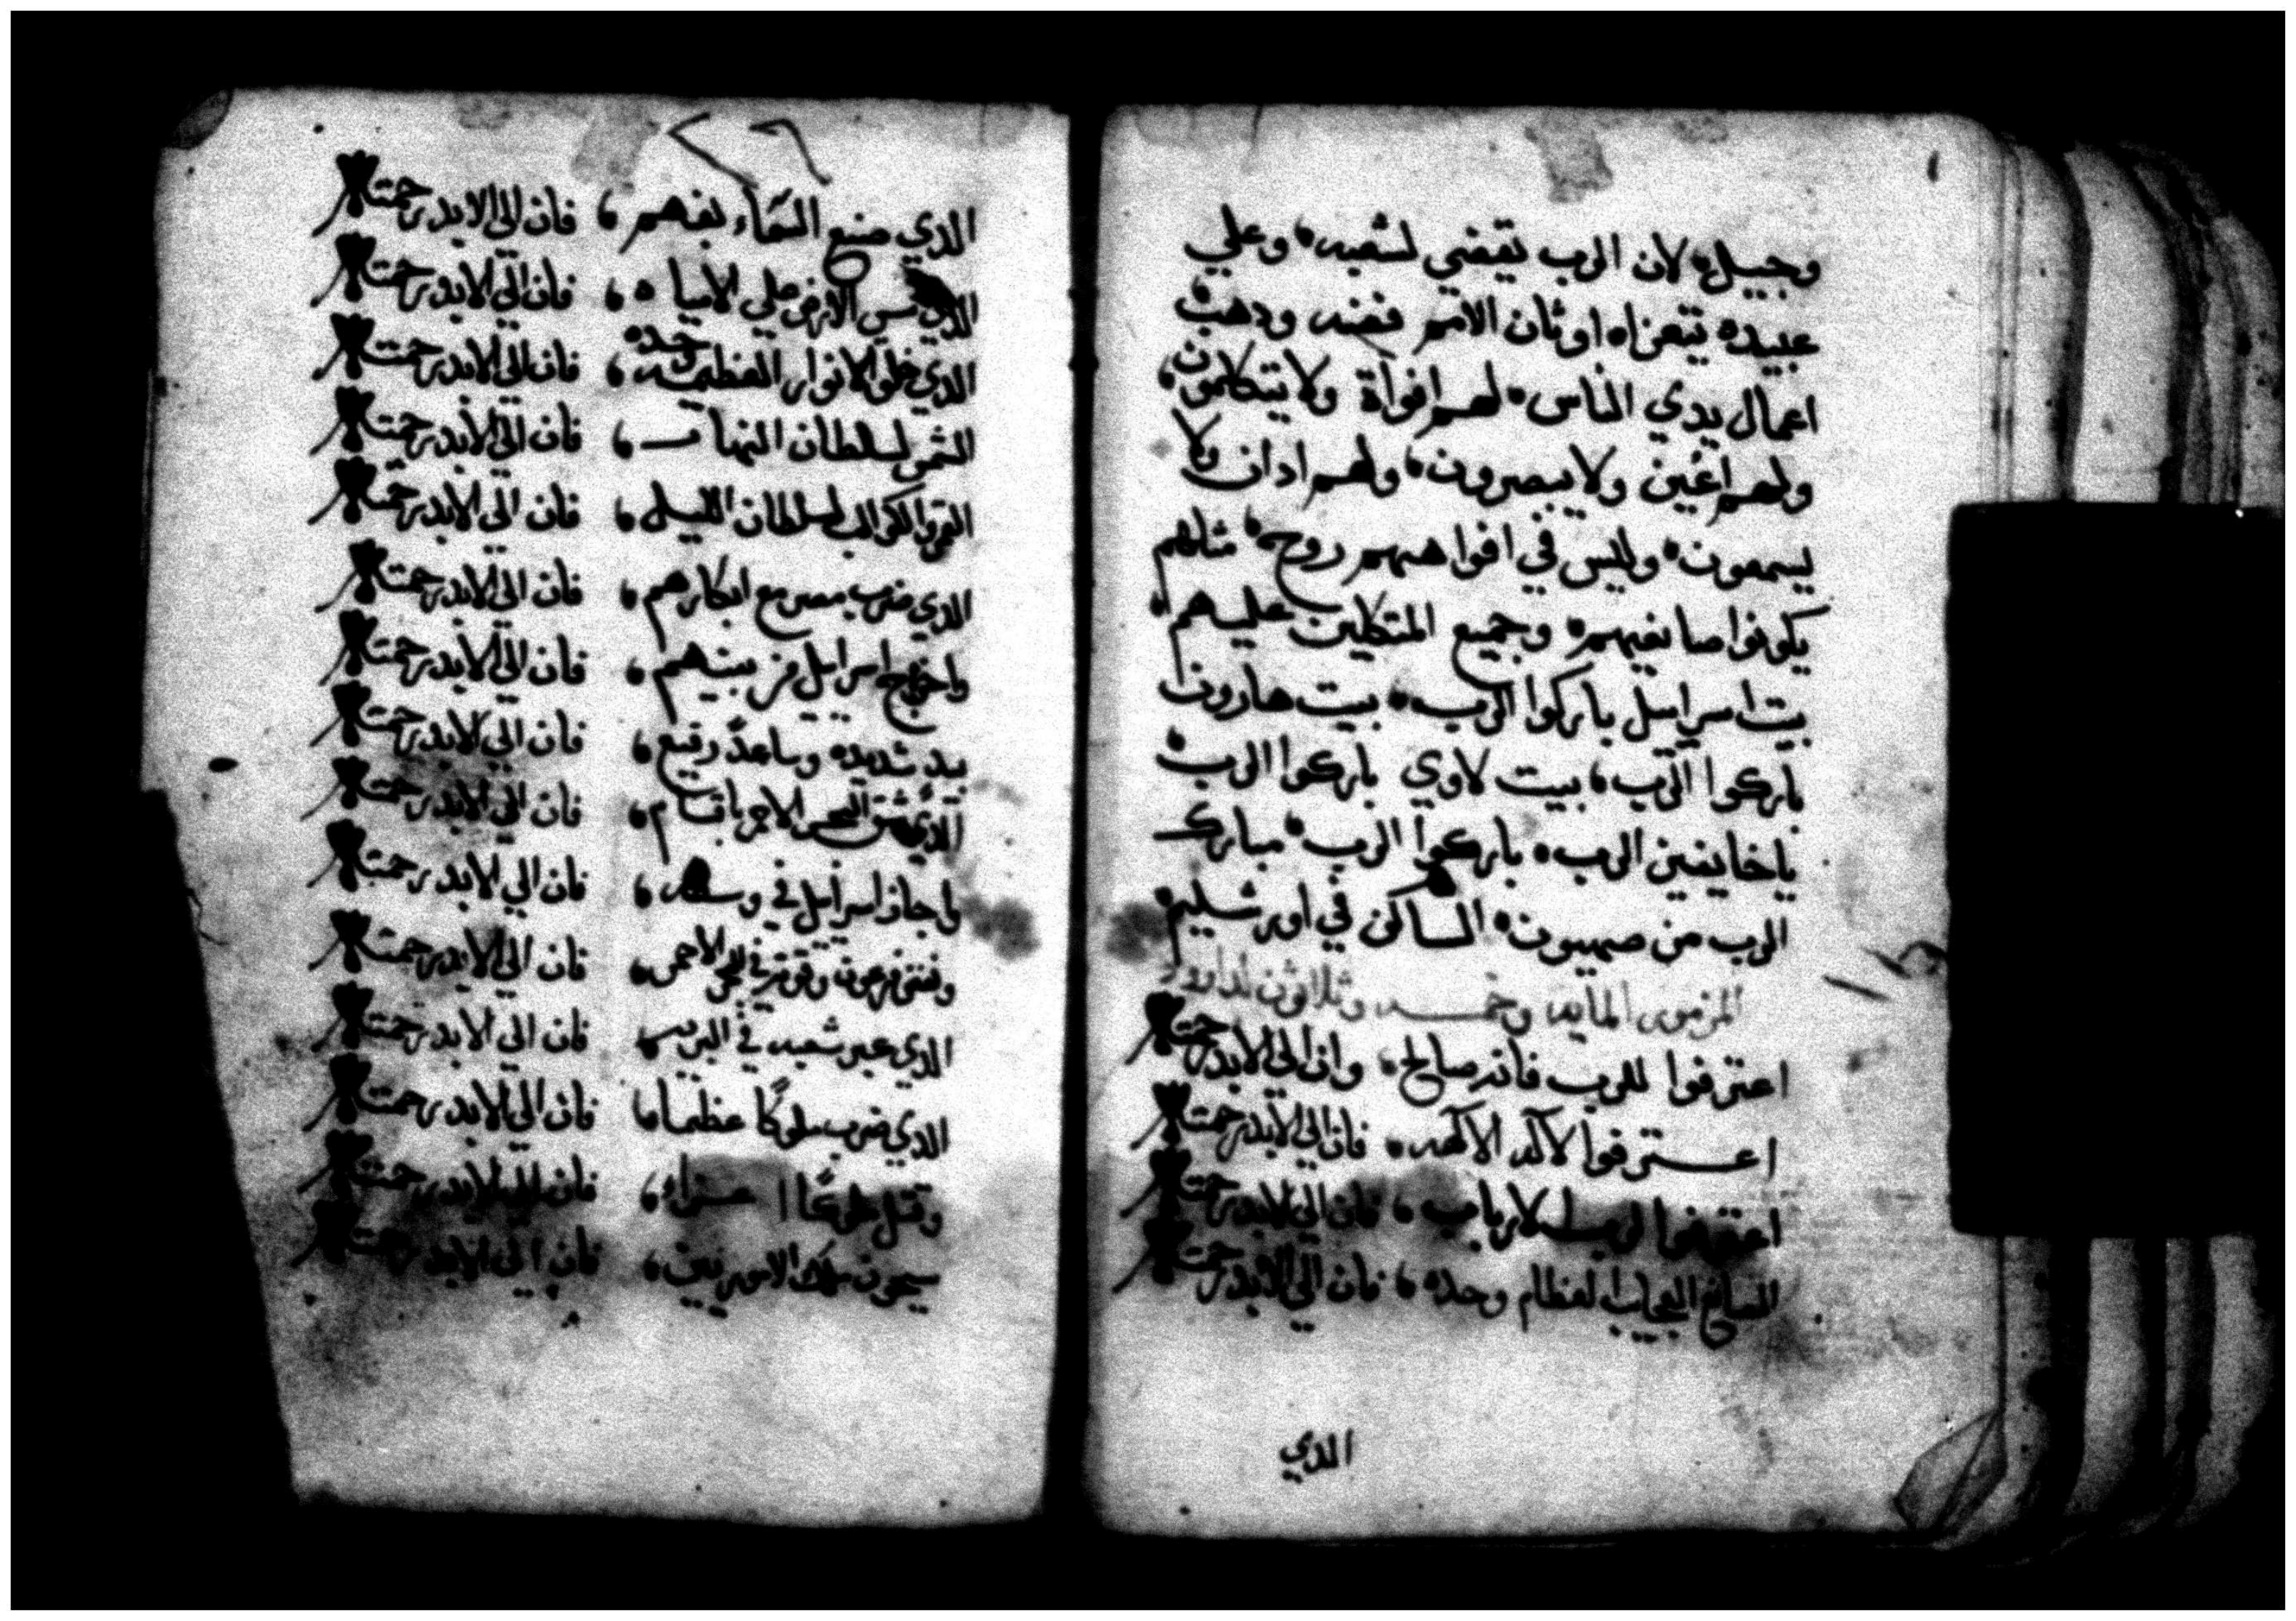 وجييله لان الرب يقضي لشعبه وعلي
عبيده يتعزاه اوثان الامم فضه ودهب
اعمال يدي الناس لهم افواة ولا يتكلمون
ولهم اعين ولا يبصرون ولهم ادان ولا
يسمعون وليس في افواههم روح مثلهم
يكونوا صانعيهم وجميع المتكلين عليهم
بيت اسراييل باركوا الرب بيت هارون
باركوا الرب بيت لاوي باركوا الرب
ياخايفين الرب باركوا الرب مبارك
الرب من صهيون الساكن في اورشليم
المزمور المايه وخمسه وثلاثون لداوود
اعترفوا للرب فانه صالح وان الي الابد رحمته
اعترفوا لاله الالهه فان الي الابد رحمته
اعترفوا لرب الارباب فان الي الابد رحمته
الصانع العجايب العظام وحده فان الي الابد رحمته
الدي
الدي صنع السماء بفهم فان الي الابد رحمته
الدي اسس الارض علي الامياه فان الي الابد رحمته
الدي خلق الانوار العظيمه وحده فان الي الابد رحمته
الشمس لسلطان النهار فان الي الابد رحمته
القمر والكواكب لسلطان الليل فان الي الابد رحمته
الدي ضرب مصر مع ابكارهم فان الي الابد رحمته
واخرج اسراييل من بينهم فان الي الابد رحمته
بيد شديده وساعد رفيع فان الي الابد رحمته
الدي شق البحر الاحمر باقسام فان الي الابد رحمته
واجاز اسراييل في وسطه فان الي الابد رحمته
ونفض فرعون وقوته في البحر الاحمر فان الي الابد رحمته
الدي عبر شعبه في البريه فان الي الابد رحمته
الدي ضرب ملوكا عظيما فان الي الابد رحمته
وقتل ملوكا اعزاء فان الي الابد رحمته
سيحون ملك الاموريين فان الي الابد رحمته